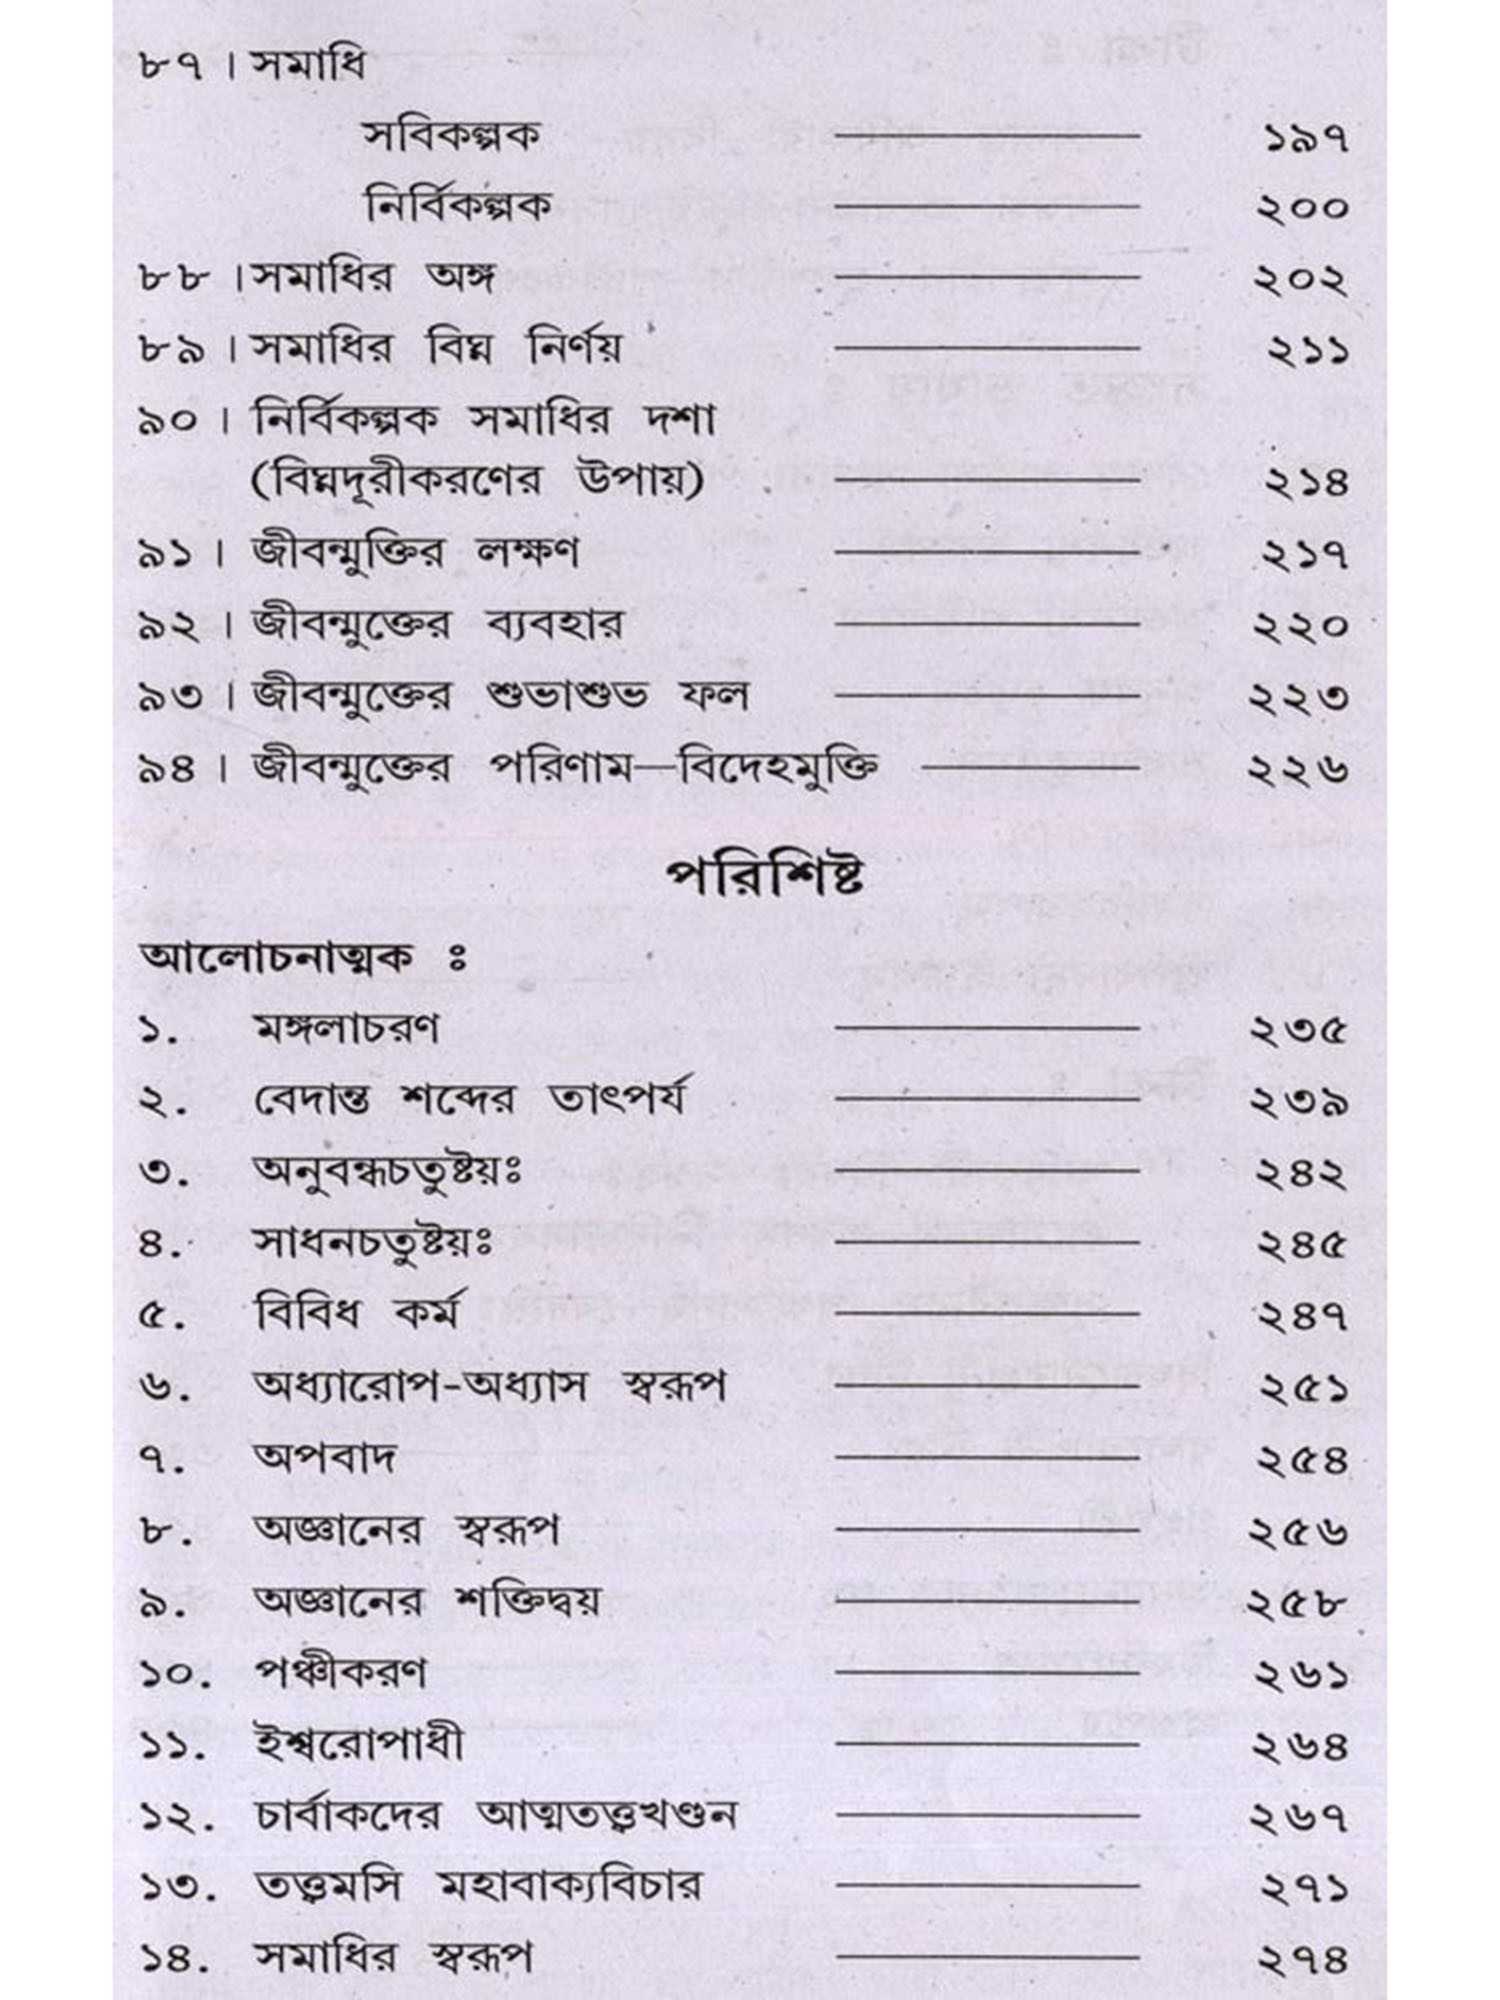 ৮৭ । সমাধি
সবিকল্পক ———— ১৯৭
নির্বিকল্পক ———— ২০০
৮৮ । সমাধির অঙ্গ ———— ২০২
৮৯ । সমাধির বিঘ্ন নির্ণয় ———— ২১১
৯০ । নির্বিকল্পক সমাধির দশা
(বিঘ্নদূরীকরণের উপায়) ———— ২১৪
৯১ । জীবন্মুক্তির লক্ষণ ———— ২১৭
৯২ । জীবন্মুক্তের ব্যবহার ———— ২২০
৯৩ । জীবন্মুক্তের শুভাশুভ ফল ———— ২২৩
৯৪ । জীবন্মুক্তের পরিণাম—বিদেহমুক্তি ———— ২২৬
পরিশিষ্ট
আলোচনাত্মক ঃ
১. মঙ্গলাচরণ ———— ২৩৫
২. বেদান্ত শব্দের তাৎপর্য ———— ২৩৯
৩. অনুবন্ধচতুষ্টয়ঃ ———— ২৪২
৪. সাধনচতুষ্টয়ঃ ———— ২৪৫
৫. বিবিধ কর্ম ———— ২৪৭
৬. অধ্যারোপ-অধ্যাস স্বরূপ ———— ২৫১
৭. অপবাদ ———— ২৫৪
৮. অজ্ঞানের স্বরূপ ———— ২৫৬
৯. অজ্ঞানের শক্তিদ্বয় ———— ২৫৮
১০. পঞ্চীকরণ ———— ২৬১
১১. ইশ্বরোপাধী ———— ২৬৪
১২. চার্বাকদের আত্মতত্ত্বখণ্ডন ———— ২৬৭
১৩. তত্ত্বমসি মহাবাক্যবিচার ———— ২৭১
১৪. সমাধির স্বরূপ ———— ২৭৪